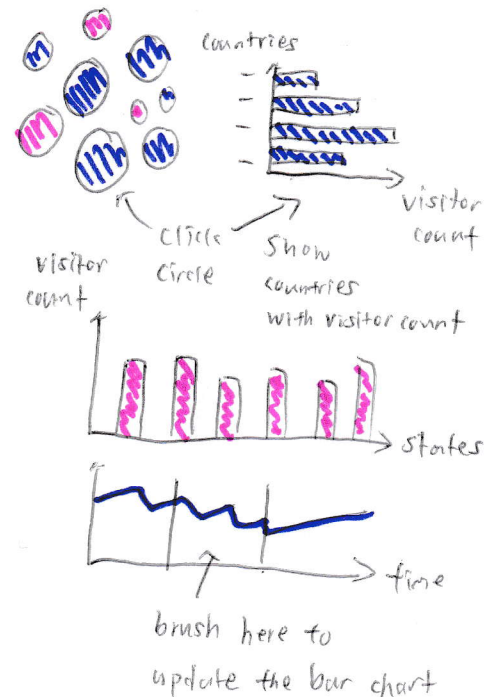 countries
visitor
count
Click
Circle
Show
countries
with visitor count
visitor
count
states
time
brush here to
update the bar chart